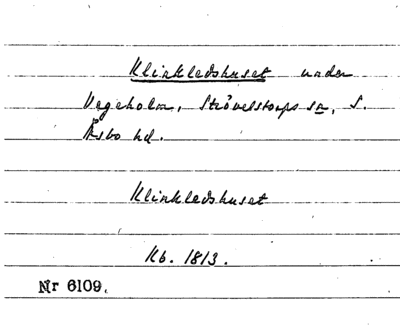 Klinkledshuset under
Vegeholm, Strövelstorps sn, S.
Åsbo hd.
Klinkledshuset
Kb. 1813.
Nr 6109.